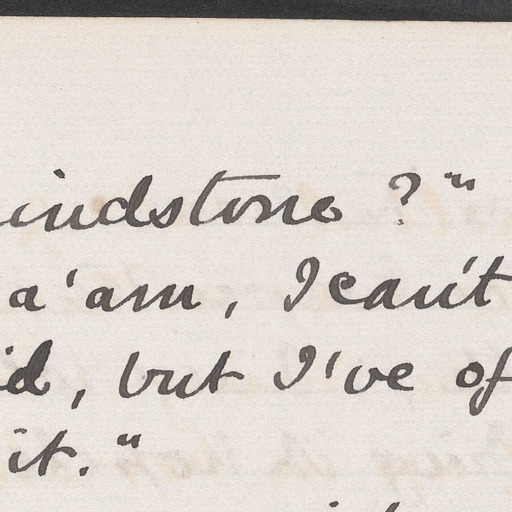 indstone ?"
a'am, I can't
d, but I've of
it."